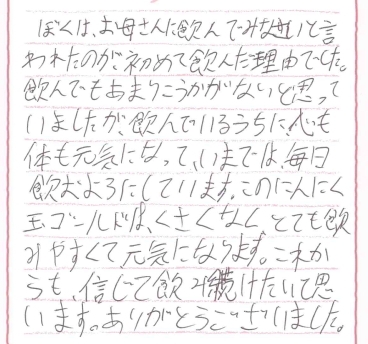 ぼくは、お母さんに飲んでみなさいと言
われたのが、初めて飲んだ理由でした。
飲んでもあまりこうかがないと思って
いましたが、飲んでいるうちに、心も
体も元気になって、いまでは、毎日
飲むようにしています。このにんにく
玉ゴールドは、くさくなく、とても飲
みやすくて元気になります。これか
らも、信じて飲み続けたいて思
います。ありがとうございました。